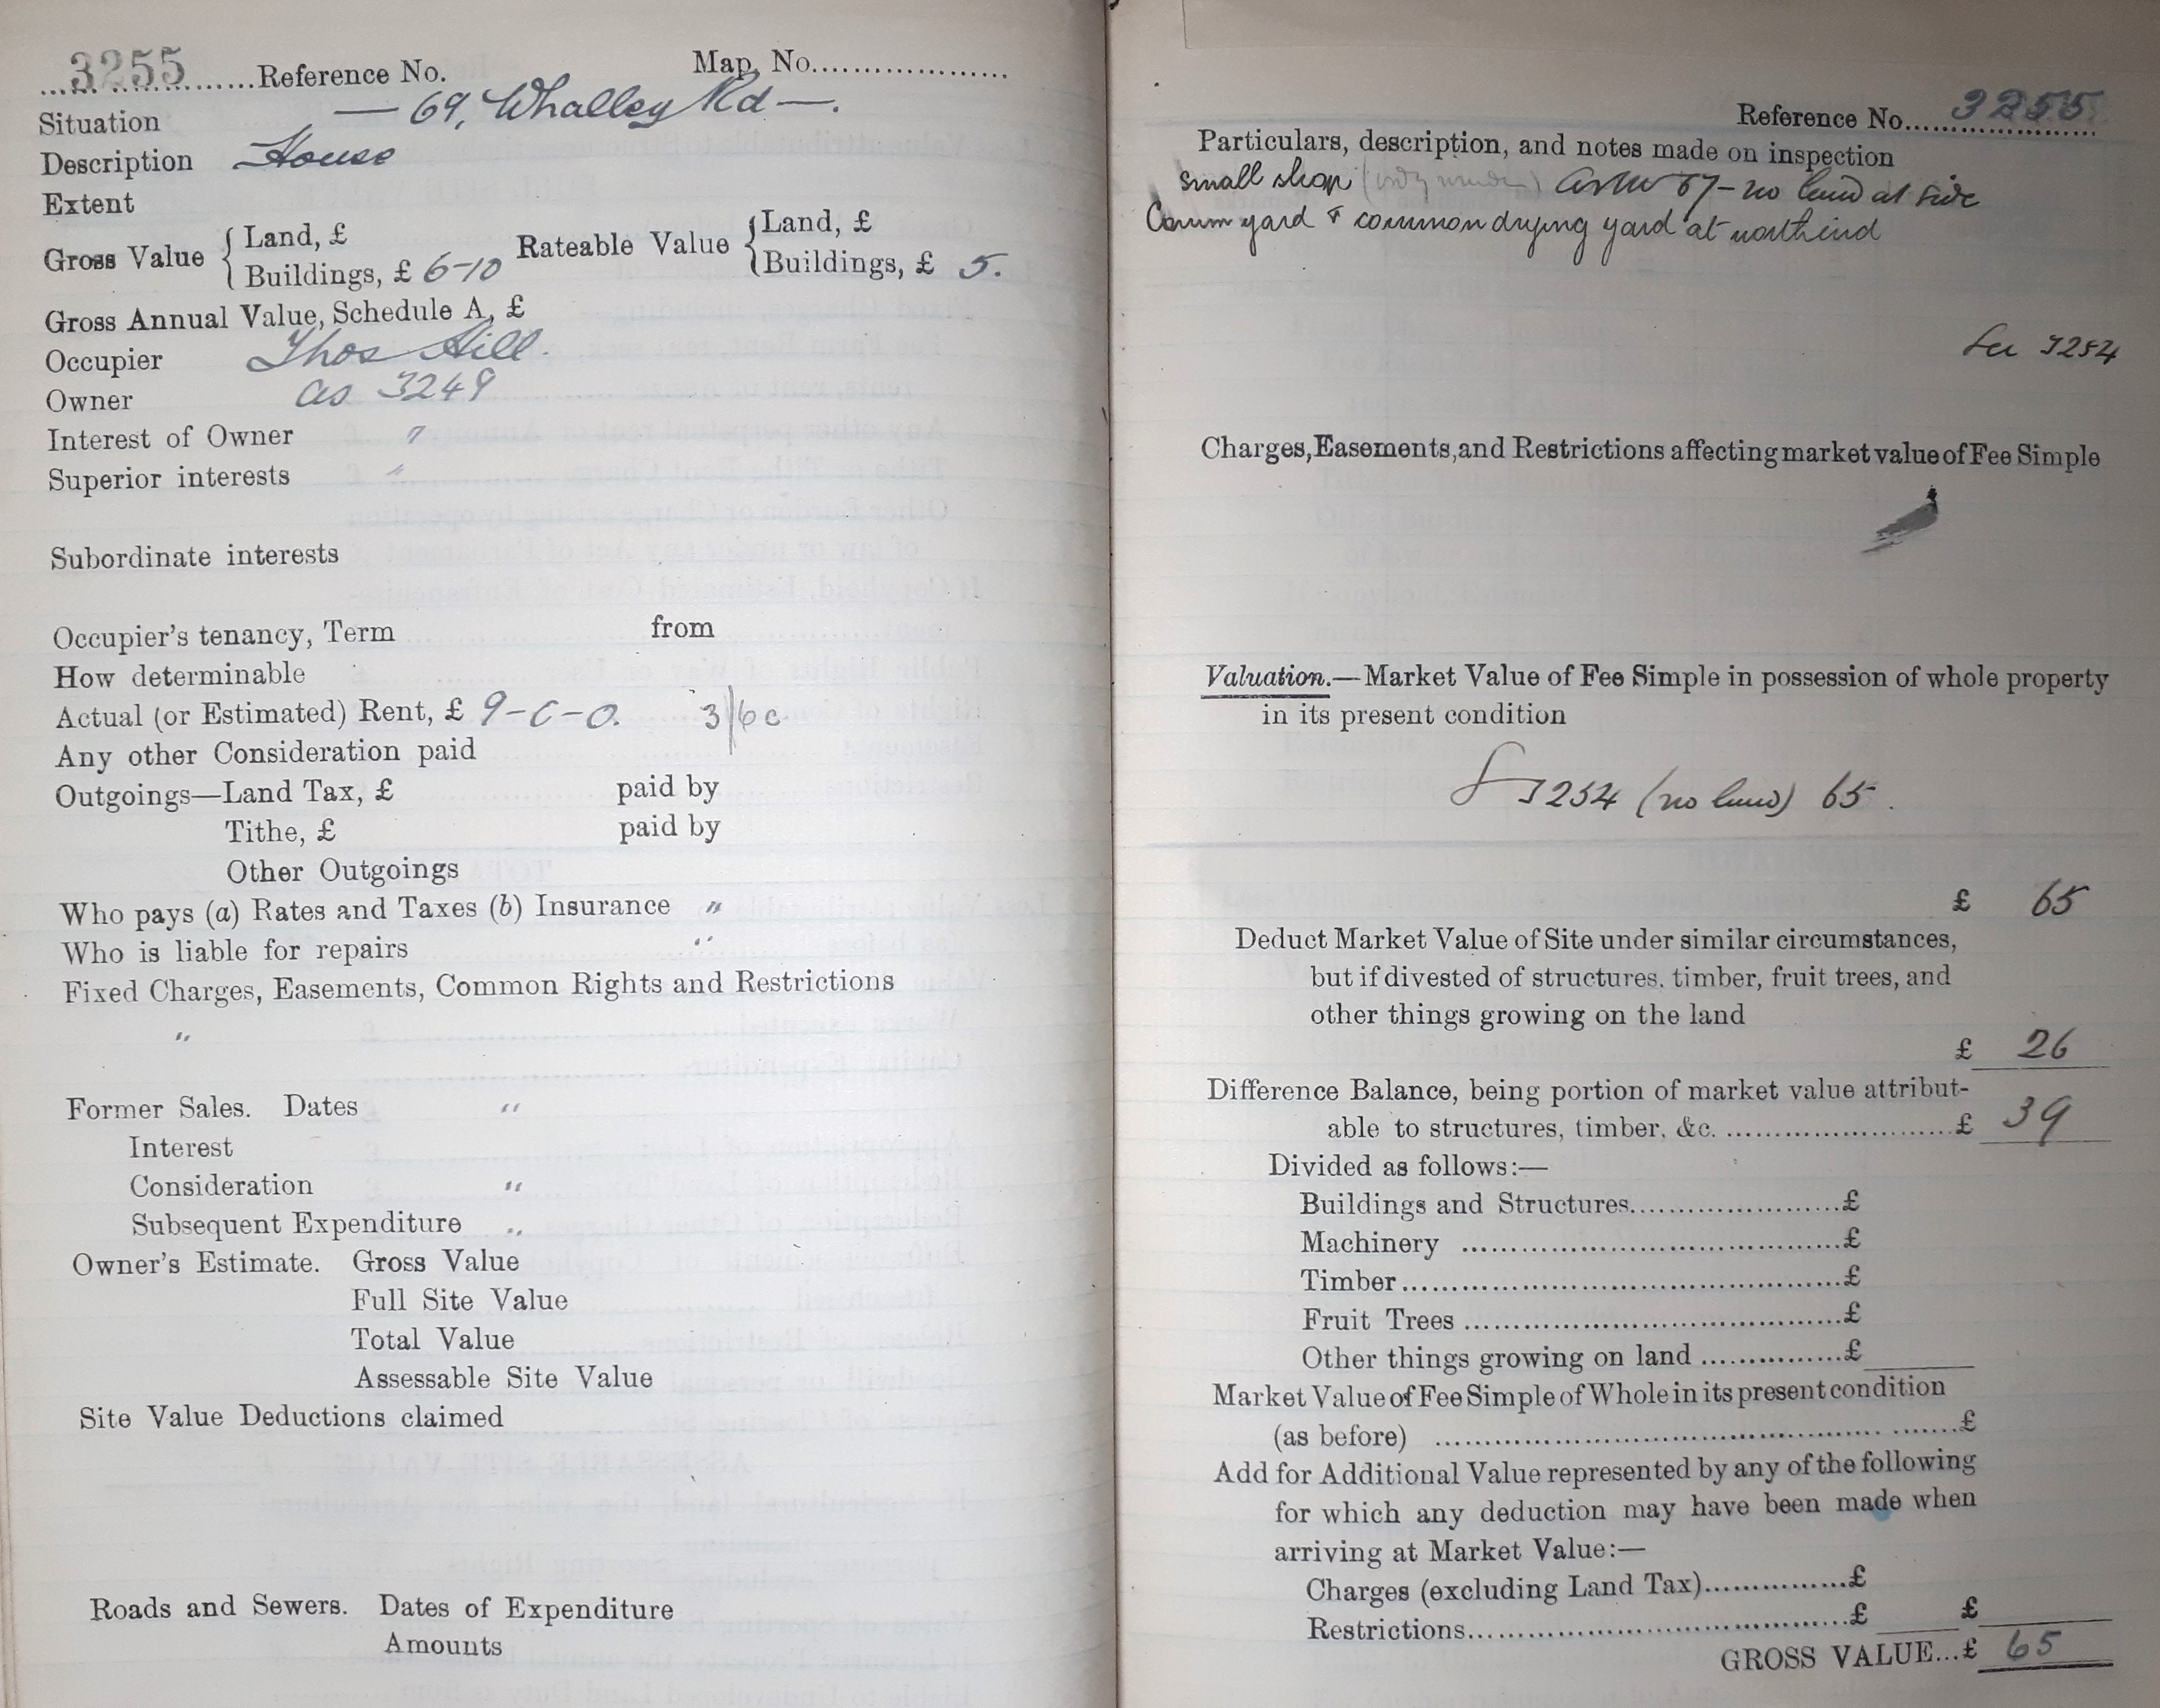 3255 Reference No. Map. No.
Situation — 69, Whalley Rd —.
Description House
Extent
Gross Value { Land, £
Buildings, £ 6-10
Rateable Value { Land, £
Buildings, £ 5.
Gross Annual Value, Schedule A, £
Occupier Thos Hill.
Owner as 3249
Interest of Owner "
Superior interests "
Subordinate interests
Occupier's tenancy, Term from
How determinable
Actual (or Estimated) Rent, £ 9-0-0. 3/6 c
Any other Consideration paid
Outgoings—Land Tax, £ paid by
Tithe, £ paid by
Other Outgoings
Who pays (a) Rates and Taxes (b) Insurance "
Who is liable for repairs "
Fixed Charges, Easements, Common Rights and Restrictions
"
Former Sales. Dates "
Interest
Consideration "
Subsequent Expenditure "
Owner's Estimate. Gross Value
Full Site Value
Total Value
Assessable Site Value
Site Value Deductions claimed
Roads and Sewers. Dates of Expenditure
Amounts
Reference No. 3255
Particulars, description, and notes made on inspection
Small shop 67 – no land at side
Comm yard & common drying yard at north end
See 3254
Charges, Easements, and Restrictions affecting market value of Fee Simple
Valuation.—Market Value of Fee Simple in possession of whole property
in its present condition
3254 (no land) 65.
£ 65
Deduct Market Value of Site under similar circumstances,
but if divested of structures. timber, fruit trees, and
other things growing on the land
£ 26
Difference Balance, being portion of market value attribut-
able to structures, timber, &c. £ 39
Divided as follows:—
Buildings and Structures £
Machinery £
Timber £
Fruit Trees £
Other things growing on land £
Market Value of Fee Simple of Whole in its present condition
(as before) £
Add for Additional Value represented by any of the following
for which any deduction may have been made when
arriving at Market Value:—
Charges (excluding Land Tax) £
Restrictions £ £
GROSS VALUE...£ 65